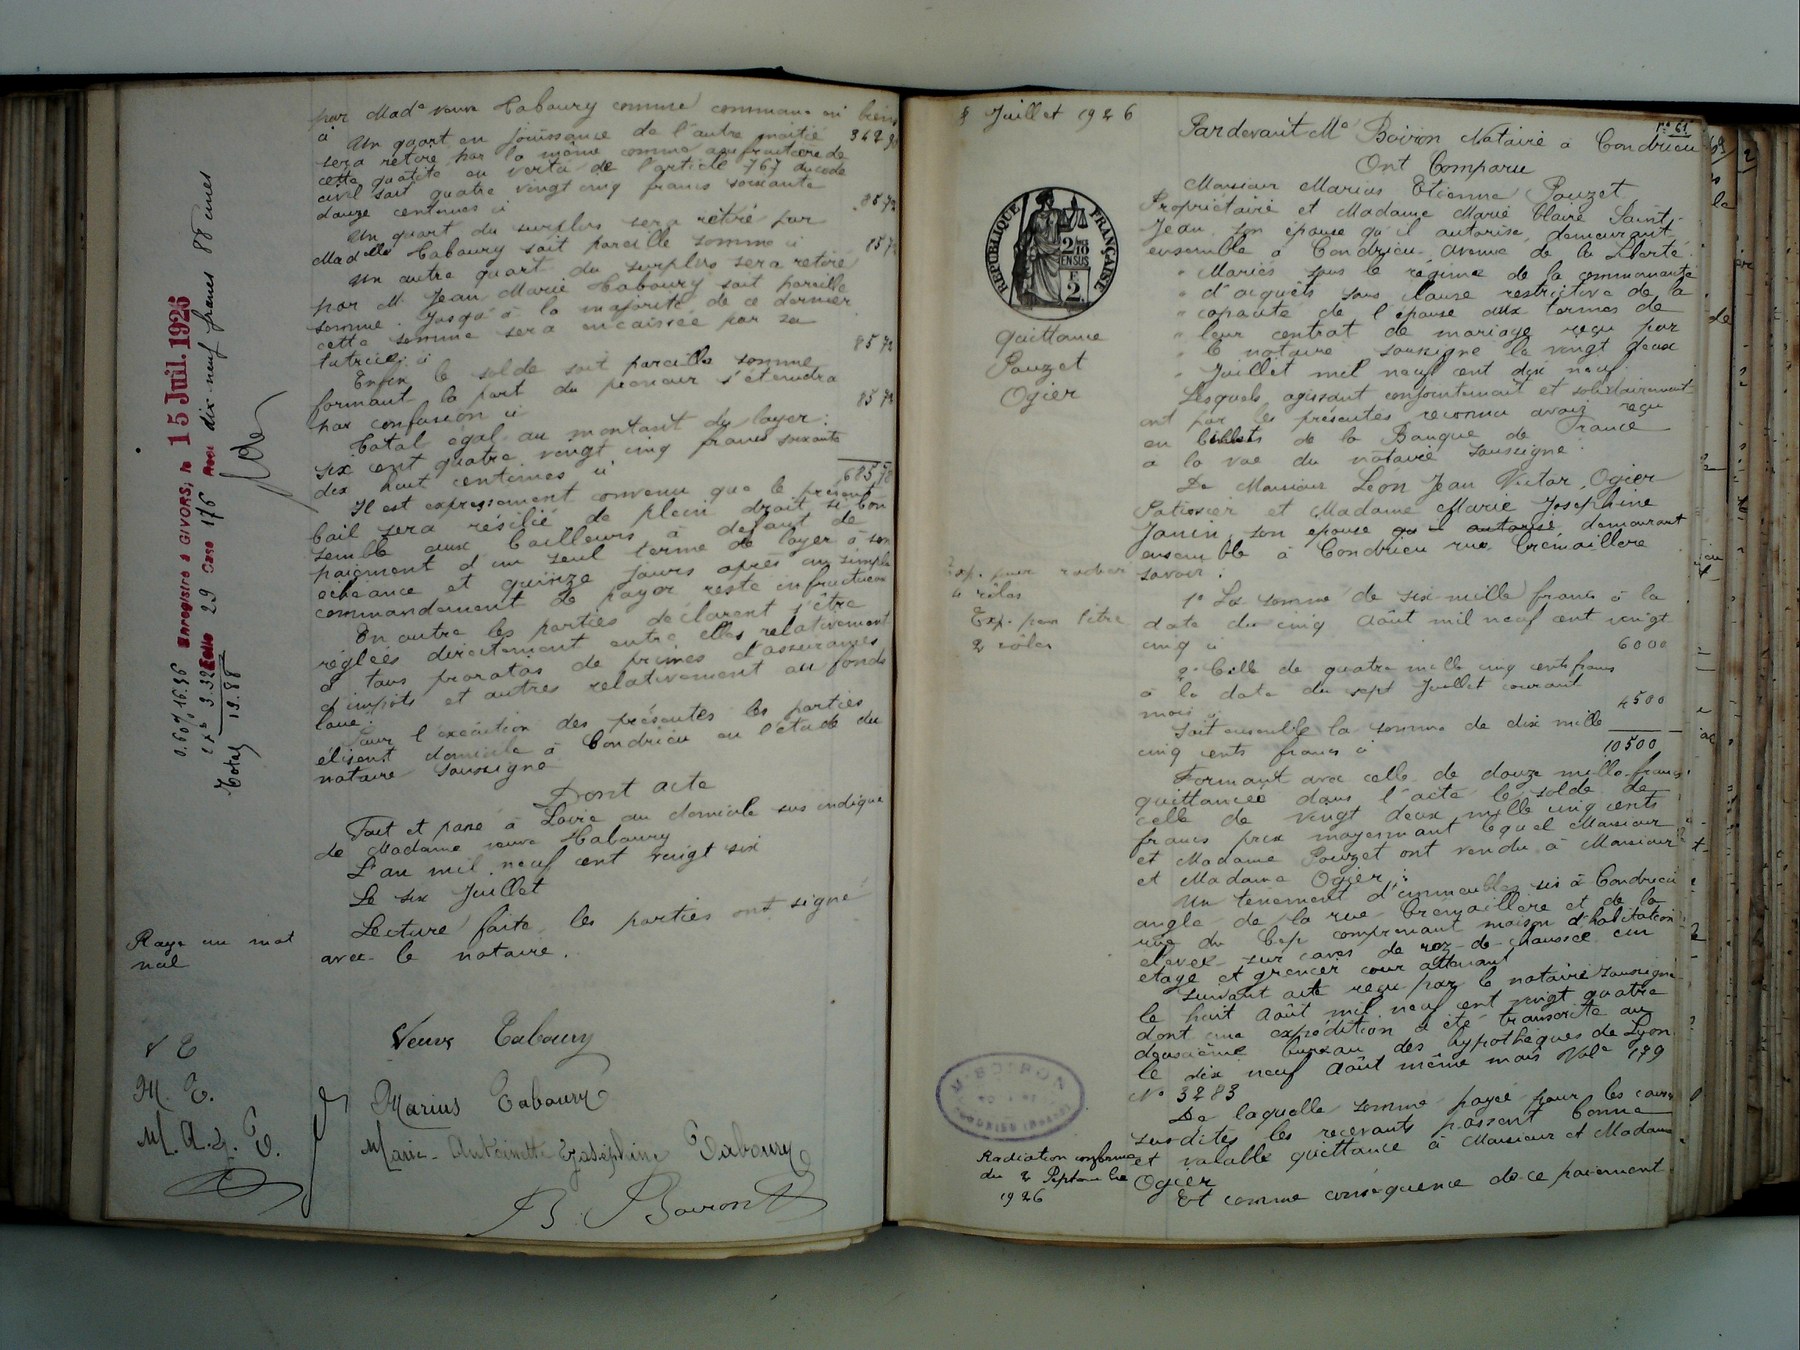 par Made veuve Taboury comme commune en biens
à 342 90
Un quart en jouissance de l'autre moitié
sera retiré par la même comme usufruitière de
cette quotité en vertu de l'article 767 du code
civil soit quatre vingt cinq francs soixante
douze centimes ci 85 72
Un quart du surplus sera retiré par
Madelle Taboury soit pareille somme ci 85 72
Un autre quart du surplus sera retiré
par M Jean Marie Taboury soit pareille
somme. Jusqu'à la majorité de ce dernier
cette somme sera encaissée par sa
tutrice ci 85 72
Enfin le solde soit pareille somme
formant la part du preneur s'éteindra
par confusion ci 85 72
Total égal au montant du loyer :
six cent quatre vingt cinq francs soixante
dix huit centimes ci 685,78
Il est expressément convenu que le présent
bail sera résilié de plein droit si bon
semble aux bailleurs à défaut de
paiement d'un seul terme de loyer à son
échéance et quinze jours après un simple
commandement de payer resté infructueux
En outre les parties déclarent s'être
réglées directement entre elles relativement
à tous proratas de primes d'assurances
d'impôts et autres relativement au fonds
loué.
Pour l'exécution des présentes les parties
élisent domicile à Condrieu en l'étude du
notaire soussigné
Dont acte
Fait et passé à Loire au domicile sus indiqué
de Madame veuve Taboury
L'an mil neuf cent vingt six
Le six Juillet
Lecture faite les parties ont signé
avec le notaire.
Rayé un mot
nul
Veuve Taboury
Marius Taboury
Marie-Antoinette Joséphine Taboury
B. Boiron
V T
M. T.
M. A. J. T.
Enregistré à GIVORS, le 15 Juil. 1926
Folio 29 Case 176 Reçu dix-neuf francs 88 cmes
0.60% 16.56
2 x 3.32
Total 19.88
8 Juillet 1926
RÉPUBLIQUE FRANÇAISE
2/10
EN SUS
F
2.
Quittance
Pouzet
Ogier
Exp. pour radier
4 rôles
Exp. pour titre
2 rôles
Mᵉ BOIRON
Radiation conforme
du 2 Septembre
1926
Pardevant Me Boiron Notaire à Condrieu
Ont Comparu
Monsieur Marius Etienne Pouzet
Propriétaire et Madame Marie Claire Saint-
Jean son épouse qu'il autorise demeurant
ensemble à Condrieu avenue de la Liberté
" Mariés sous le régime de la communauté
" d'acquêts sans clause restrictive de la
" capacité de l'épouse aux termes de
" leur contrat de mariage reçu par
" le notaire soussigné le vingt deux
" Juillet mil neuf cent dix neuf.
Lesquels agissant conjointement et solidairement
ont par les présentes reconnu avoir reçu
en billets de la Banque de France
à la vue du notaire soussigné
De Monsieur Léon Jean Victor Ogier
Patissier et Madame Marie Joséphine
Janin son épouse qu'il autorise demeurant
ensemble à Condrieu rue Crémaillère
savoir :
1° La somme de six mille francs à la
date du cinq Août mil neuf cent vingt
cinq ci 6000
2° Celle de quatre mille cinq cents francs
à la date du sept Juillet courant
mois ci 4500
Soit ensemble la somme de dix mille
cinq cents francs ci 10500
Formant avec celle de douze mille francs
quittancée dans l'acte le solde de
celle de vingt deux mille cinq cents
francs prix moyennant lequel Monsieur
et Madame Pouzet ont vendu à Monsieur
et Madame Ogier :
Un tènement d'immeubles sis à Condrieu
angle de la rue Crémaillère et de la
rue du Cep comprenant maison d'habitation
élevée sur caves de rez-de-chaussée un
étage et grenier cour attenant
Suivant acte reçu par le notaire soussigné
le huit Août mil neuf cent vingt quatre
dont une expédition a été transcrite au
deuxième bureau des hypothèques de Lyon
le dix neuf Août même mois Vole 179
N° 3283
De laquelle somme payée pour les causes
susdites les recevants passent bonne
et valable quittance à Monsieur et Madame
Ogier
Et comme conséquence de ce paiement